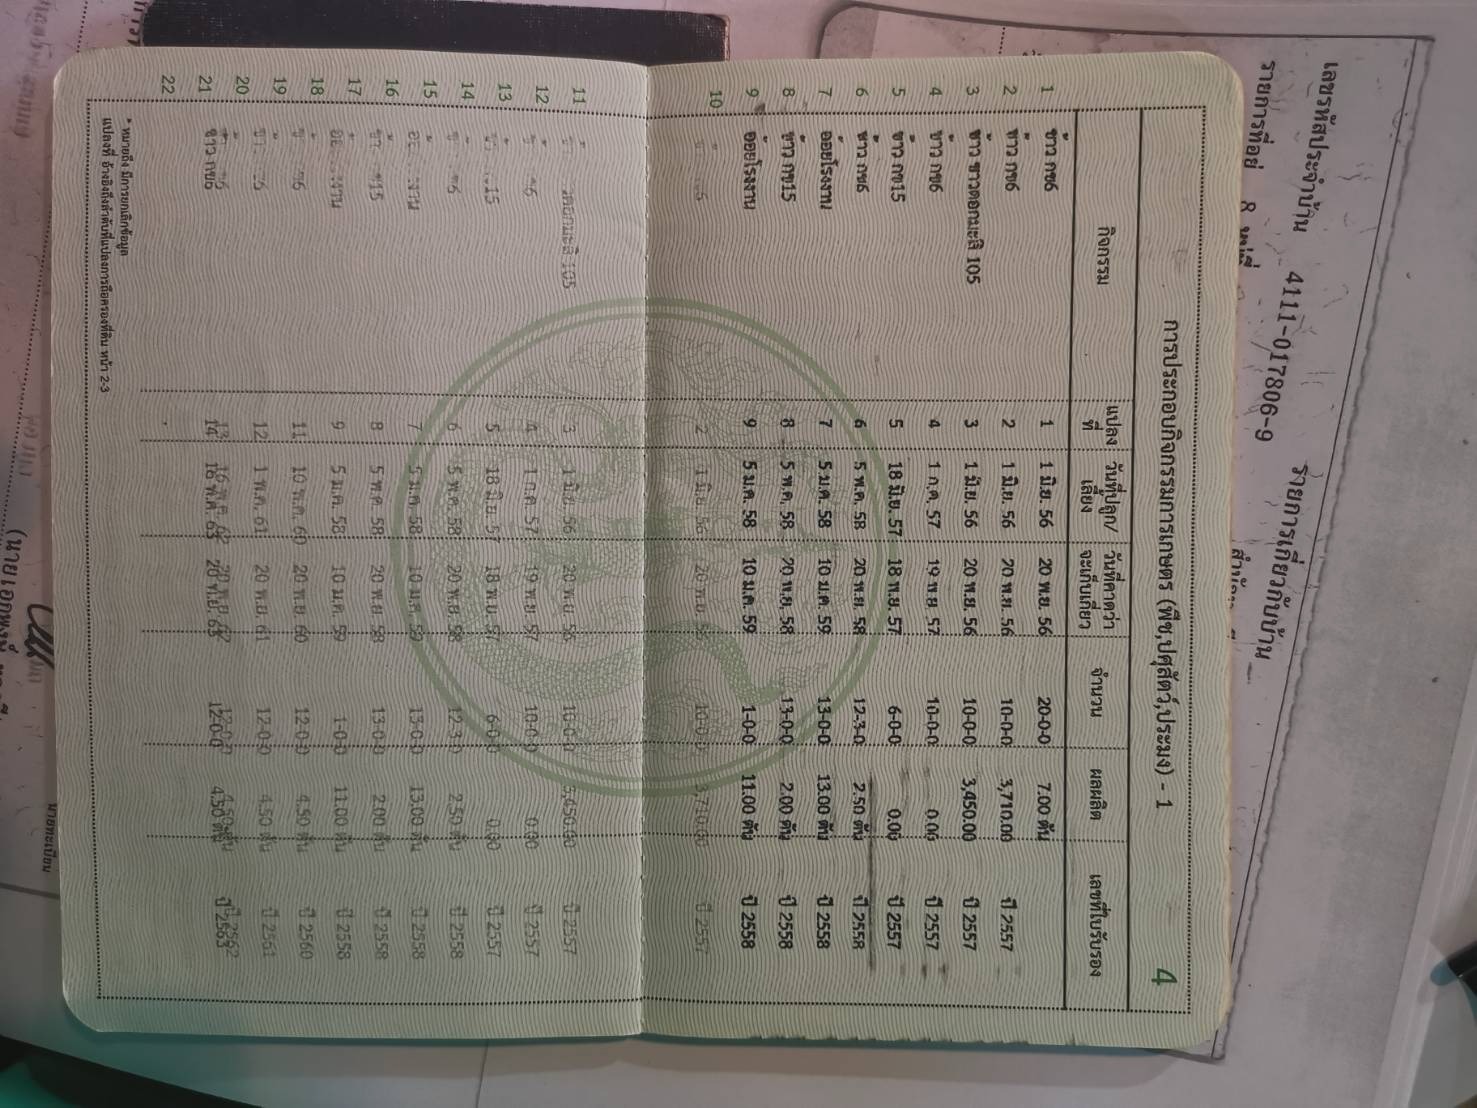 เลขรหัสประจำบ้าน 4111-017806-9 รายการเกี่ยวกับบ้าน
รายการที่อยู่ 8 หมู่ที่
การประกอบกิจกรรมการเกษตร (พืช,ปศุสัตว์,ประมง) - 1 4
กิจกรรม แปลงที่ วันที่ปลูก/เลี้ยง วันที่คาดว่าจะเก็บเกี่ยว จำนวน ผลผลิต เลขที่ใบรับรอง
1 ข้าว กข6 1 1 มิ.ย. 56 20 พ.ย. 56 20-0-0 7.00 ตัน
2 ข้าว กข6 2 1 มิ.ย. 56 20 พ.ย. 56 10-0-0 3,710.00 ปี 2557
3 ข้าว ขาวดอกมะลิ 105 3 1 มิ.ย. 56 20 พ.ย. 56 10-0-0 3,450.00 ปี 2557
4 ข้าว กข6 4 1 ก.ค. 57 19 พ.ย. 57 10-0-0 0.00 ปี 2557
5 ข้าว กข15 5 18 มิ.ย. 57 18 พ.ย. 57 6-0-0 0.00 ปี 2557
6 ข้าว กข6 6 5 พ.ค. 58 20 พ.ย. 58 12-3-0 2.50 ตัน ปี 2558
7 อ้อยโรงงาน 7 5 ม.ค. 58 10 ม.ค. 59 13-0-0 13.00 ตัน ปี 2558
8 ข้าว กข15 8 5 พ.ค. 58 20 พ.ย. 58 13-0-0 2.00 ตัน ปี 2558
9 อ้อยโรงงาน 9 5 ม.ค. 58 10 ม.ค. 59 1-0-0 11.00 ตัน ปี 2558
10 2 1 มิ.ย. 56 20 พ.ย. 56 10-0-0 3,710.00 ปี 2557
11 105 3 1 มิ.ย. 56 20 พ.ย. 56 10-0-0 3,450.00 ปี 2557
12 4 1 ก.ค. 57 19 พ.ย. 57 10-0-0 0.00 ปี 2557
13 5 18 มิ.ย. 57 18 พ.ย. 57 6-0-0 0.00 ปี 2557
14 6 5 พ.ค. 58 20 พ.ย. 58 12-3-0 2.50 ตัน ปี 2558
15 7 5 ม.ค. 58 10 ม.ค. 59 13-0-0 13.00 ตัน ปี 2558
16 8 5 พ.ค. 58 20 พ.ย. 58 13-0-0 2.00 ตัน ปี 2558
17 9 5 ม.ค. 58 10 ม.ค. 59 1-0-0 11.00 ตัน ปี 2558
18 11 10 พ.ค. 60 20 พ.ย. 60 12-0-0 4.50 ตัน ปี 2560
19 12 1 พ.ค. 61 20 พ.ย. 61 12-0-0 4.50 ตัน ปี 2561
20 13 16 พ.ค. 62 ปี 2562
21 ข้าว กข6 14 20 พ.ย. 63 12-0-0 4.50 ตัน ปี 2563
22
* หมายถึง มีการยกเลิกข้อมูล
แปลงที่ อ้างอิงถึงลำดับที่แปลงการถือครองที่ดิน หน้า 2-3
นายทะเบียน